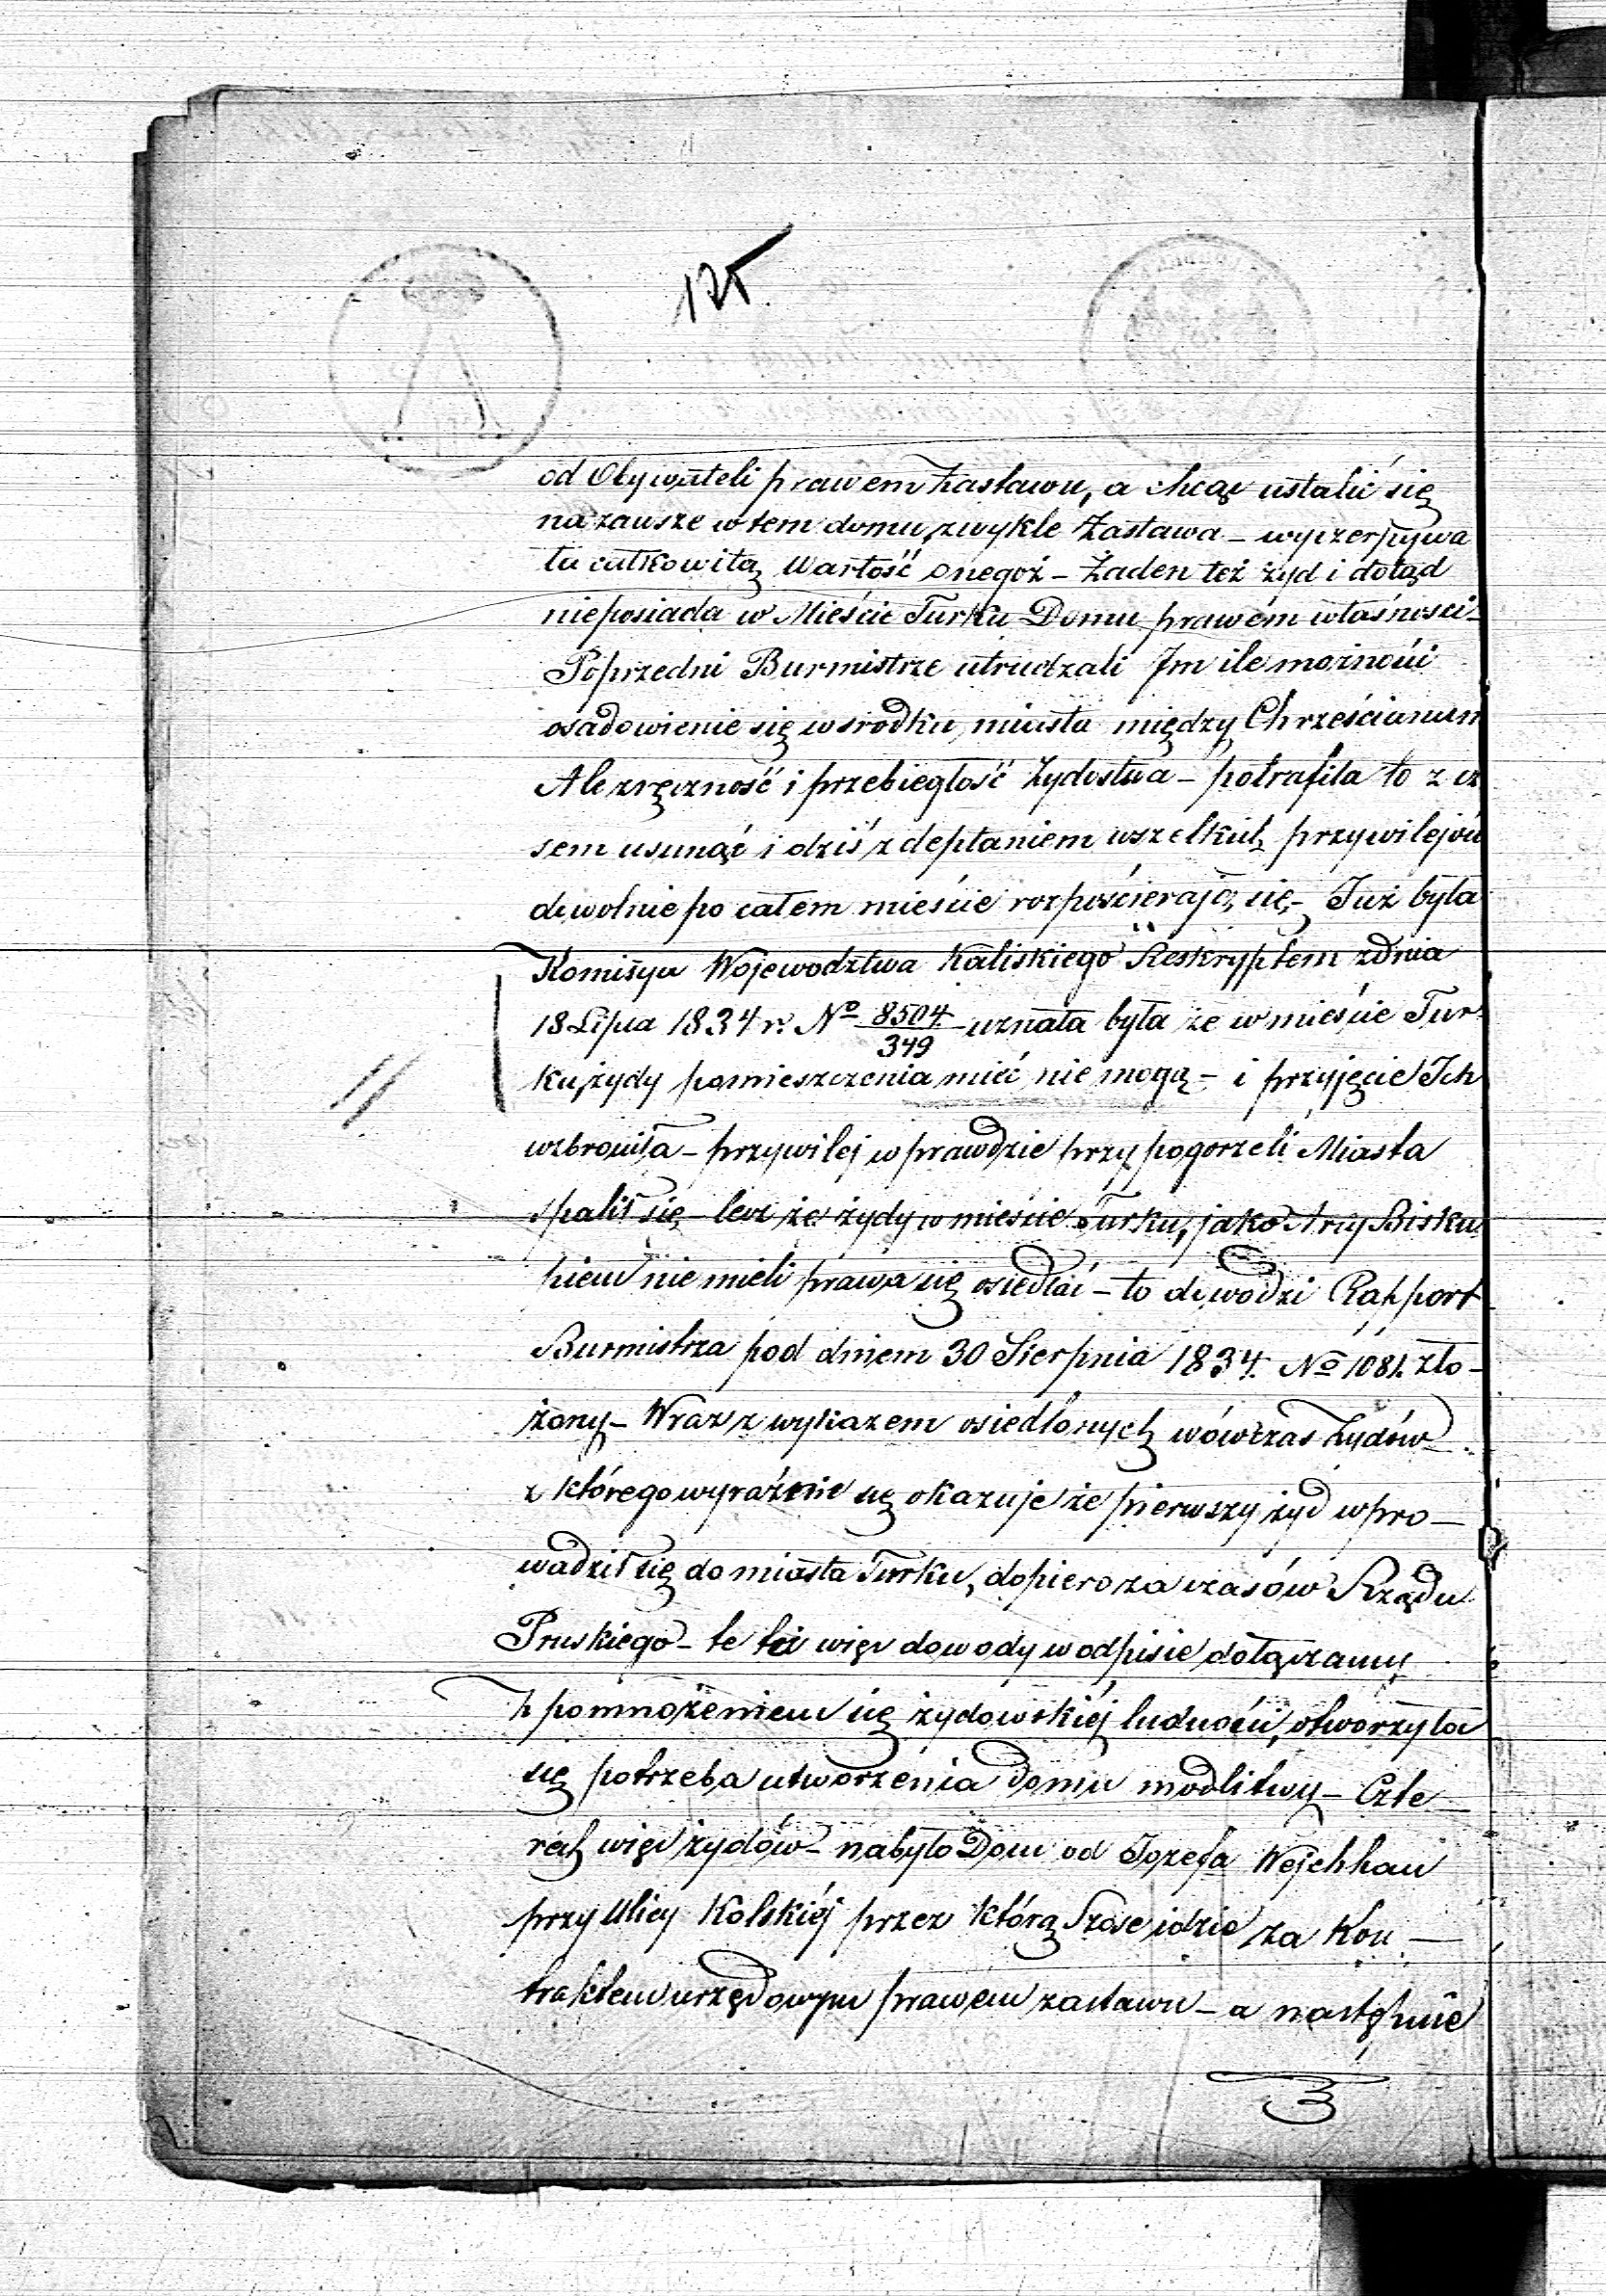 125.
od Obywateli prawem Zastawu, a chcąc ustalić się
na zawsze w tem domu, zwykle Zastawa – wyczerpywa
tu całkowitą wartość onegoż – Żaden też żyd i dotąd
nieposiada w Mieście Turku Domu prawem własności –
Poprzedni Burmistrze utrudzali Im ile możności
osadowienie się w srodku miasta między Chrześcianam
Ale zręczność i przebiegłość Żydostwa – potrafiła to z cz
sem usunąć i dziś z deptaniem wszelkich przywilejów
dowolnie po całem mieście rozpościerają się – Już była
Komisya Wojewodztwa Kaliskiego Reskryptem z dnia
18 Lipca 1834 r. No 8504/349 uznała była że w mieście Tur
ku żydy pomieszczenia mieć nie mogą – i przyjęcie Ich
wzbroniła – przywilej w prawdzie przy pogorzeli Miasta
spalił się – lecz że żydy w mieście Turku, jako Arcy Bisku
piem nie mieli prawa się osiedlać – to dowodzi Rapport
Burmistrza pod dniem 30 Sierpnia 1834 No 1081. zło –
żony – Wraz z wykazem osiedlonych wówczas Żydów –
z którego wyraźnie się okazuje że pierwszy żyd wpro –
wadził się do miasta Turku, dopiero za czasów Rządu
Pruskiego – te też więc dowody w odpisie dołączamy
Z pomnożeniem się żydowskiéj ludności, otworzyła
się potrzeba utworzenia domu modlitwy – Czte –
rech więc żydów – nabyło Dom od Jozefa Wejchhau
przy Ulicy Kolskiéj przez którą Szose idzie za Kon –
traktem urzędowym prawem zastawu – a następnie
3